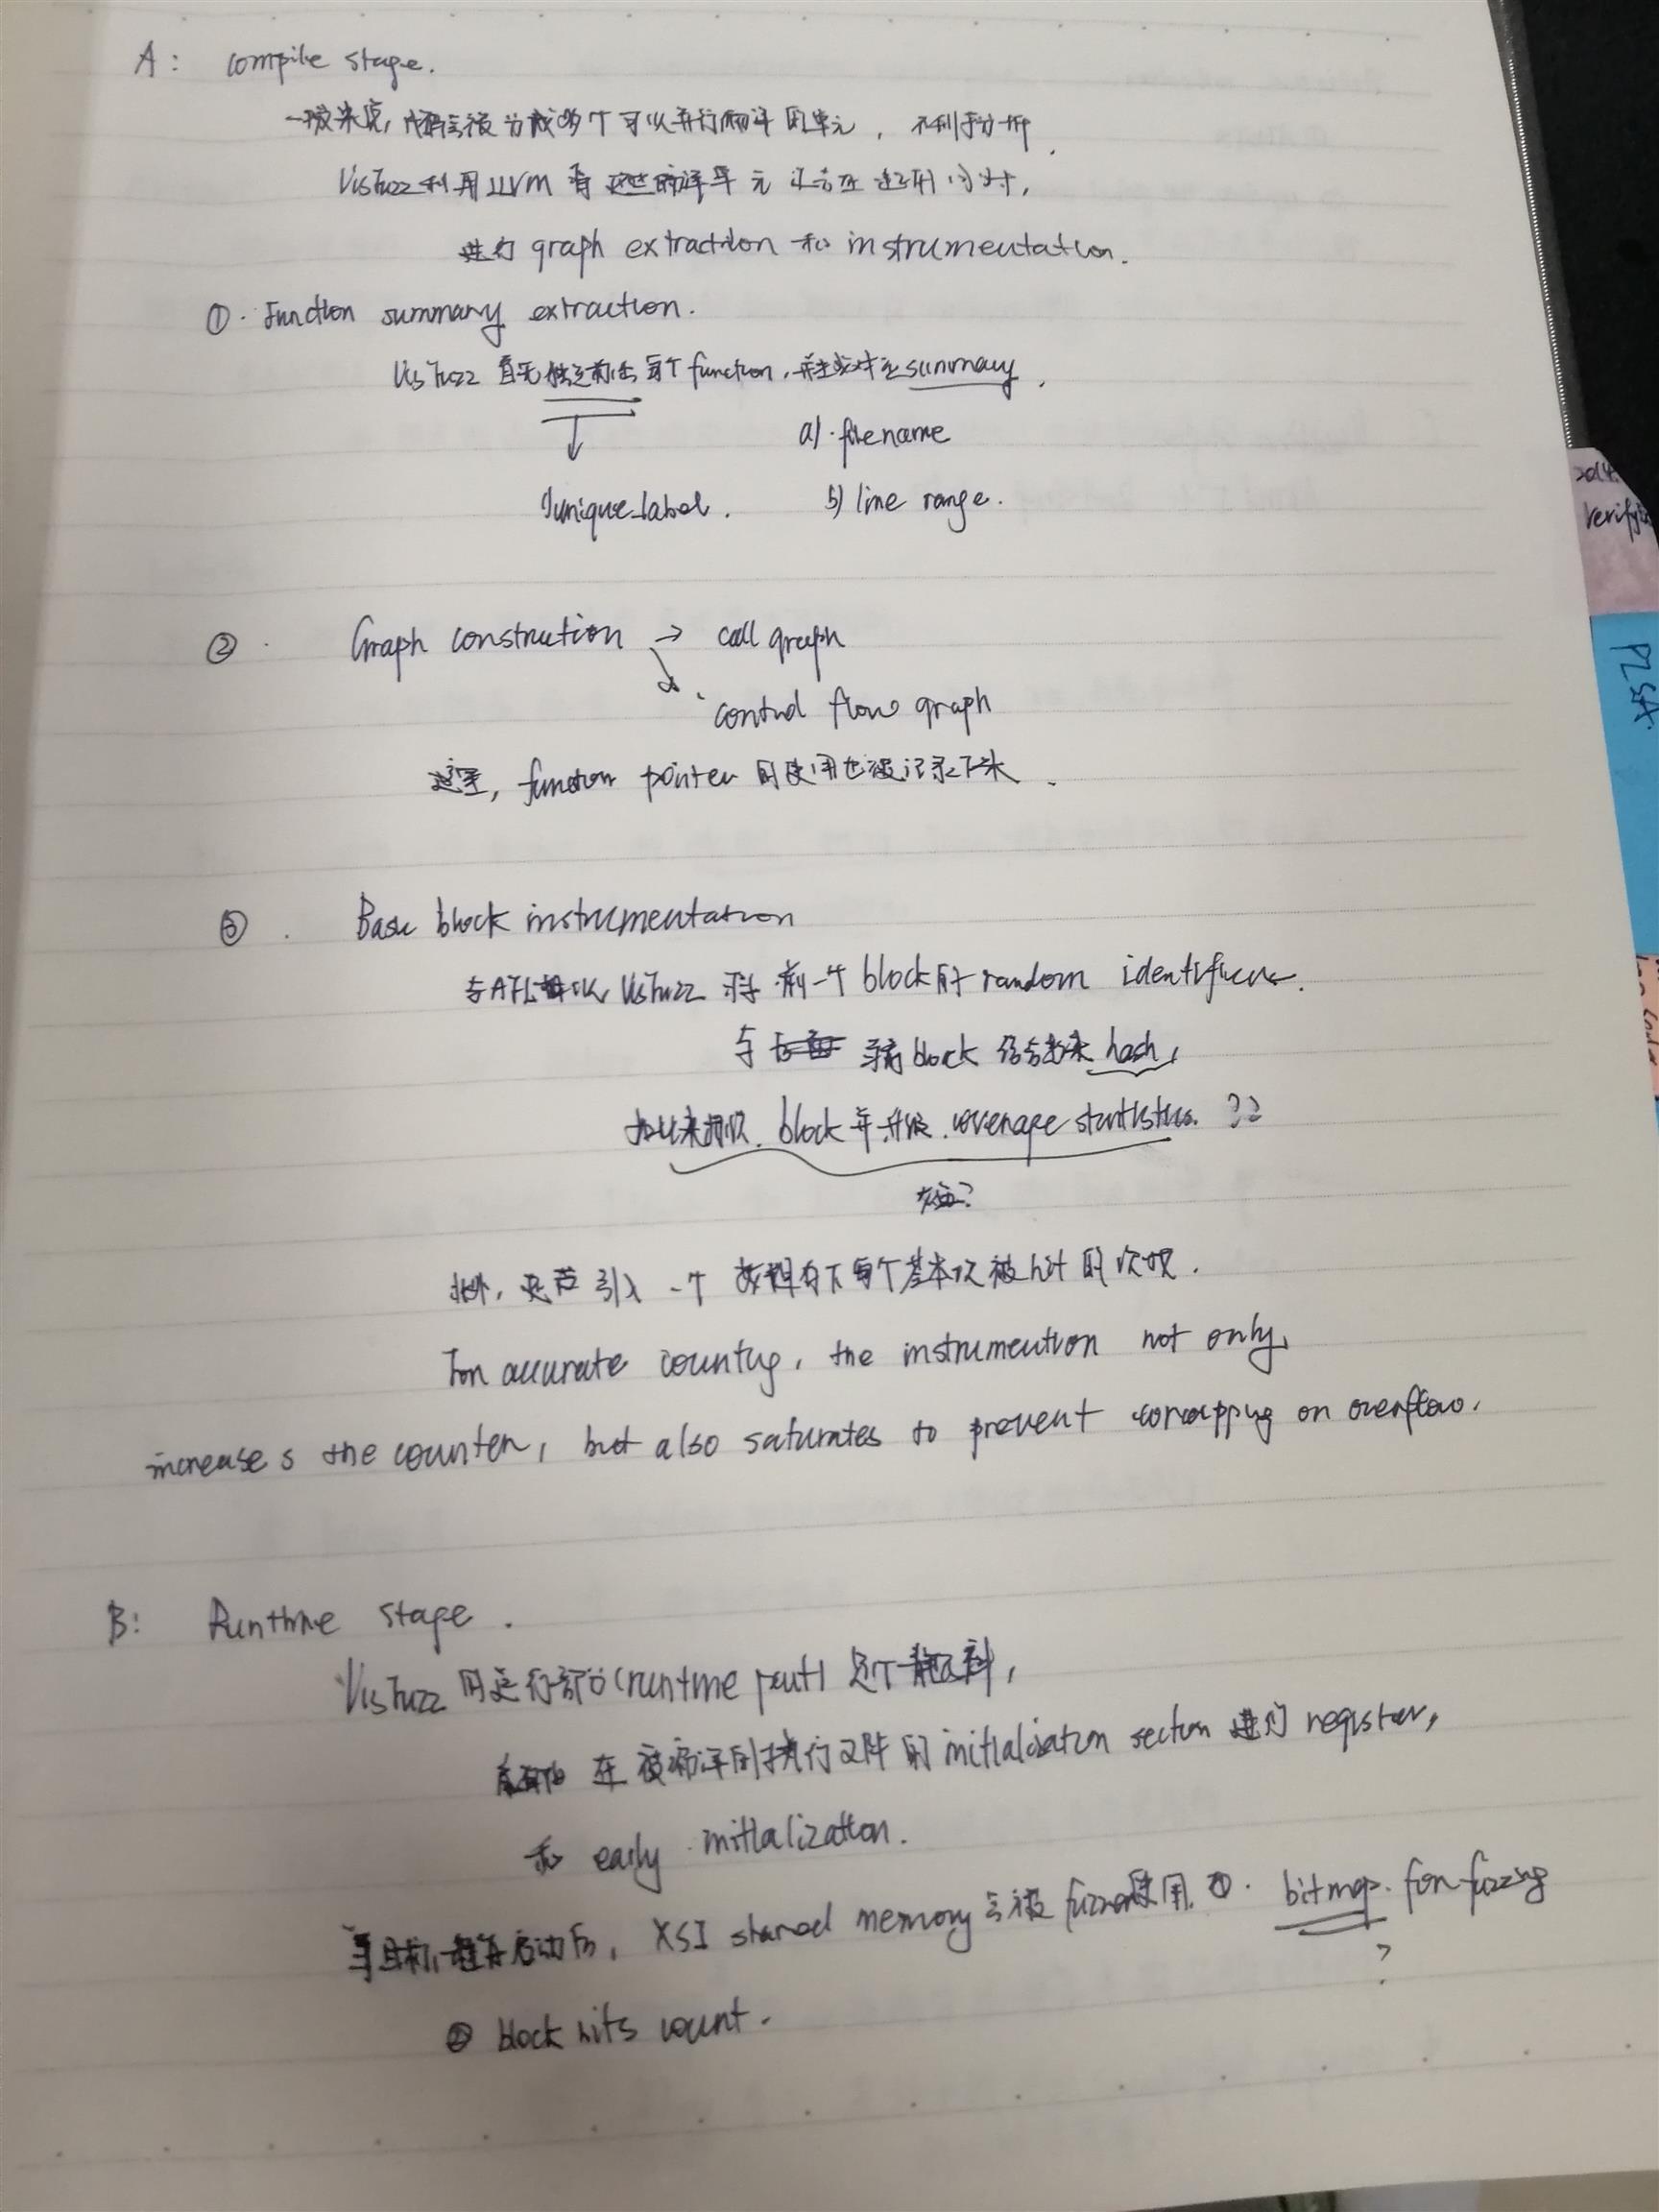 A: compile stage.
一般来说,代码会被分成多个可以并行编译的单元,不利于分析.
VisFuzz利用LLVM 将这些编译单元 进行
进行 graph extraction 和 instrumentation.
①. Function summary extraction.
VisFuzz 首先 每个 function,并生成对应 summary.
a). filename
unique label.
b) line range.
②. Graph construction → call graph
control flow graph
这里, function pointer 的使用也被记录下来.
③. Basic block instrumentation
与AFL相似 VisFuzz 将 前一个 block的 random identifier.
与 当前 block 结合起来 hash,
block 并升级. coverage statistics. ??
此外, 还应引入 一个 每个基本块被hit的次数.
For accurate counting, the instrumention not only
increases the counter, but also saturates to prevent on overflow.
B: Runtime stage.
VisFuzz 的运行部分(runtime part) 是个静态库,
在被编译的执行文件的 initialization section 进行 register,
和 early initialization.
当目标程序启动后, XSI shared memory 会被 fuzzer使用. ①. bitmap. for fuzzing
?
② block hits count.
verify
PLSA.